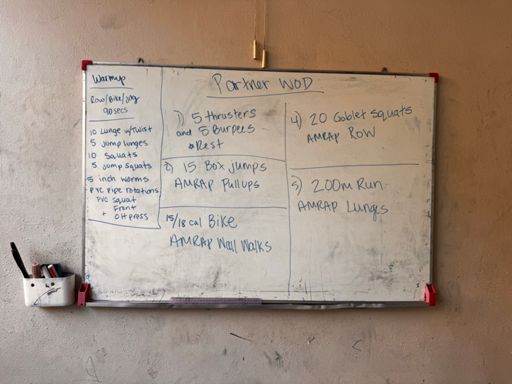 Partner WOD
Warmup
Row/Bike/Jog
90secs
10 Lunge w/twist
5 Jump lunges
10 Squats
5 Jump Squats
5 inch worms
PVC pipe rotations
PVC Squat
Front
+ OH press
1) 5 thrusters
and 5 Burpees
* Rest
2) 15 Box jumps
AMRAP Pullups
15/18 cal Bike
AMRAP Wall Walks
4) 20 Goblet Squats
AMRAP Row
5) 200m Run
AMRAP Lunges